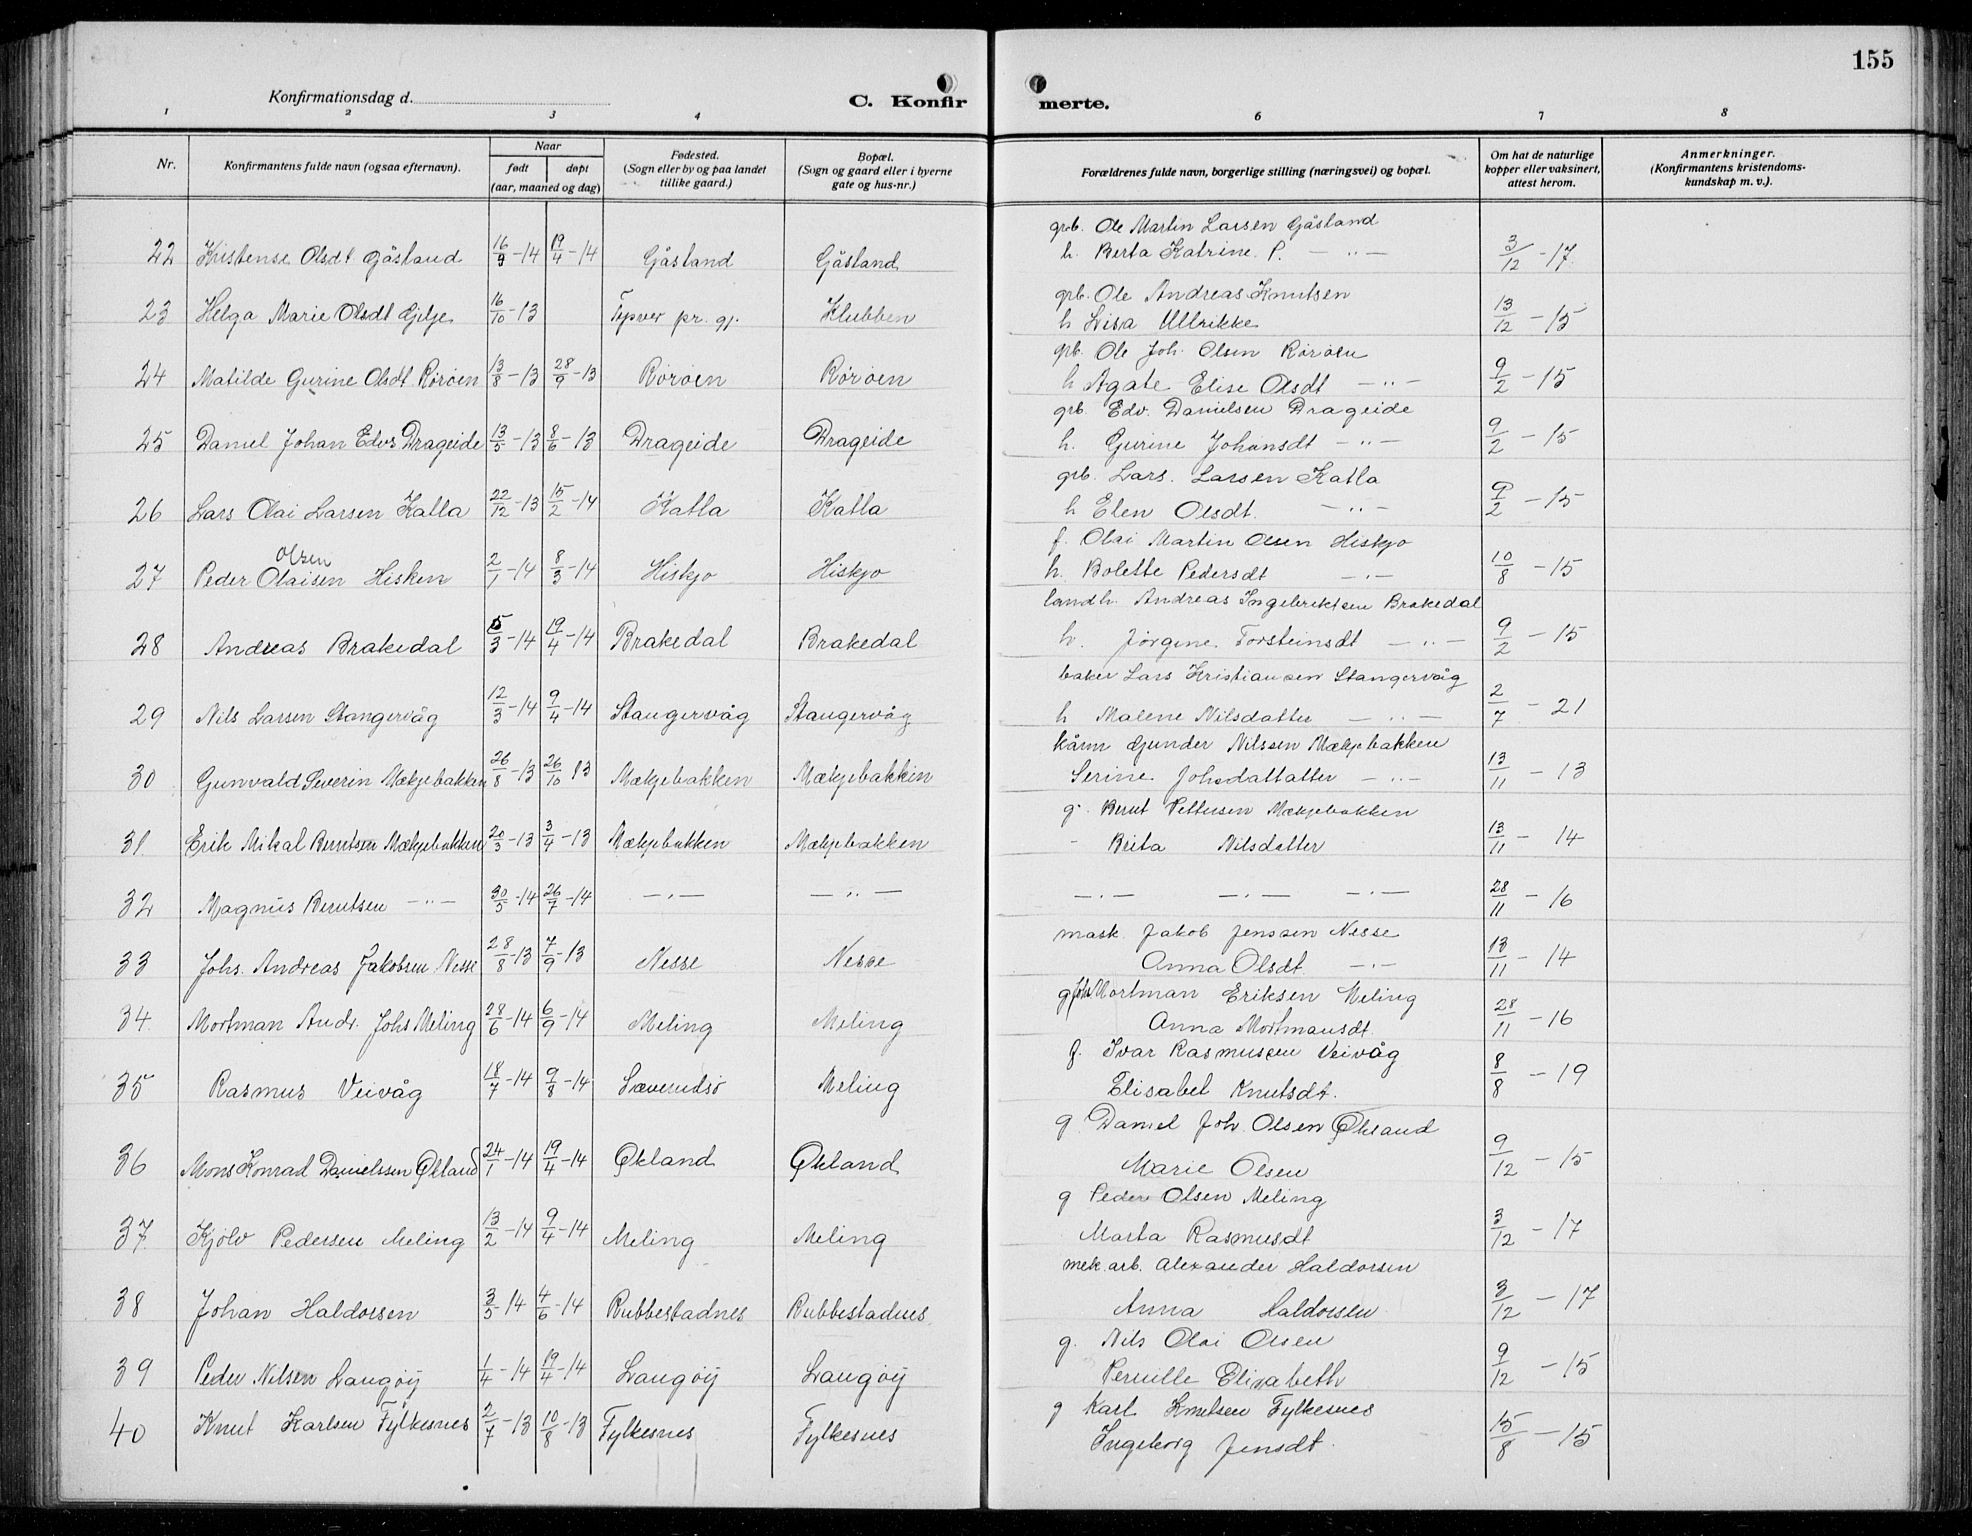 155
Konfirmationsdag d.
C. Konfir merte.
1 2 3 4 6 7 8
Nr. Konfirmantens fulde navn (ogsaa efternavn). Naar født døpt (aar, maaned og dag) Fødested. (Sogn eller by og paa landet tillike gaard.) Bopæl. (Sogn og gaard eller i byerne gate og hus-nr.) Forældrenes fulde navn, borgerlige stilling (næringsvei) og bopæl. Om hat de naturlige kopper eller vaksinert, attest herom. Anmerkninger. (Konfirmantens kristendoms-kundskap m. v.).
grb. Ole Martin Larsen Gåsland
22 Kristense Olsdt Gåsland 16/9-14 19/4-14 Gåsland Gåsland h. Berta Katrine P. — " — 3/12-17
grb. Ole Andreas Knutsen
23 Helga Marie Olsdt Gjelje 16/10-13 Typver pr. gj. Klubben h Lisa Ullrikke 13/12-15
grb. Ole Joh. Olsen Röröen
24 Matilde Gurine Olsdt Röröen 13/8-13 28/9-13 Röröen Röröen h Agate Elise Olsdt — " — 9/2-15
grb. Edv. Danielsen Drageide
25 Daniel Johan Edvs Drageide 13/5-13 8/6-13 Drageide Drageide h. Gurine Johansdt — " — 9/2-15
grb. Lars. Larsen Katla
26 Lars Olai Larsen Katla 22/12-13 15/2-14 Katla Katla h Elen Olsdt. — " — 9/2-15
f. Olai Martin Olsen Hiskjo
Olsen
27 Peder Olaisen Hisken 2/1-14 8/3-14 Hiskjo Hiskjo h. Bolette Pedersdt — " — 10/8-15
landh. Andreas Ingebriktsen Brakedal
28 Andreas Brakedal 5/3-14 19/4-14 Brakedal Brakedal h. Jörgine Torsteinsdt — " — 9/2-15
baker Lars Kristiansen Stangervåg
29 Nils Larsen Stangervåg 12/3-14 9/4-14 Stangervåg Stangervåg h Malene Nilsdatter — " — 2/7-21
kårm Gunder Nilssen Mækjebakken
30 Gunvald Severin Mækjebakken 26/8-13 26/10 13 Mækjebakken Mækjebakkin Serine Johsdattatter — " — 13/11-13
g. Bernt Pettersen Mækjebakken
31. Erik Mikal Berntsen Mækjebakken 20/3-13 3/4-13 Mækjebakken Mækjebakken - Brita Nilsdatter 13/11-14
32 Magnus Berntsen — " — 30/5-14 26/7-14 — " — — " — — " — — " — — " — 28/11-16
mask. Jakob Jenssen Nesse
33 Johs. Andreas Jakobsen Nesse 28/8-13 7/9-13 Nesse Nesse Anna Olsdt — " — 13/11-14
g Johs Mortman Eriksen Meling
34 Mortman Andr. Johs Meling 28/6-14 6/9-14 Meling Meling Anna Mortmansdt. 28/11-16
f. Ivar Rasmussen Veivåg
35 Rasmus Veivåg 18/7-14 9/8-14 Meling Elisabet Knutsdt. 8/8-19
g Daniel Joh. Olsen Økland
36 Mons Konrad Danielssen Økland 24/1-14 19/4-14 Økland Økland Marie Olsen 9/12-15
g Peder Olsen Meling
37 Kjölv Pedersen Meling 13/2-14 9/4-14 Meling Meling Marta Rasmusdt 3/12-17
mek. arb. Alexander Haldorsen
38 Johan Haldorsen 3/5-14 4/6-14 Rubbestadnes Rubbestadnes Anna Haldorsen 3/12-17
g. Nils Olai Olsen
39 Peder Nilsen Langöy 1/4-14 19/4-14 Langöy Langöy Pernille Elisabeth 9/12-15
g Karl Knutsen Fylkesnes
40 Knut Karlsen Fylkesnes 2/7-13 10/8-13 Fylkesnes Fylkesnes Ingeborg Jensdt. 15/8-15